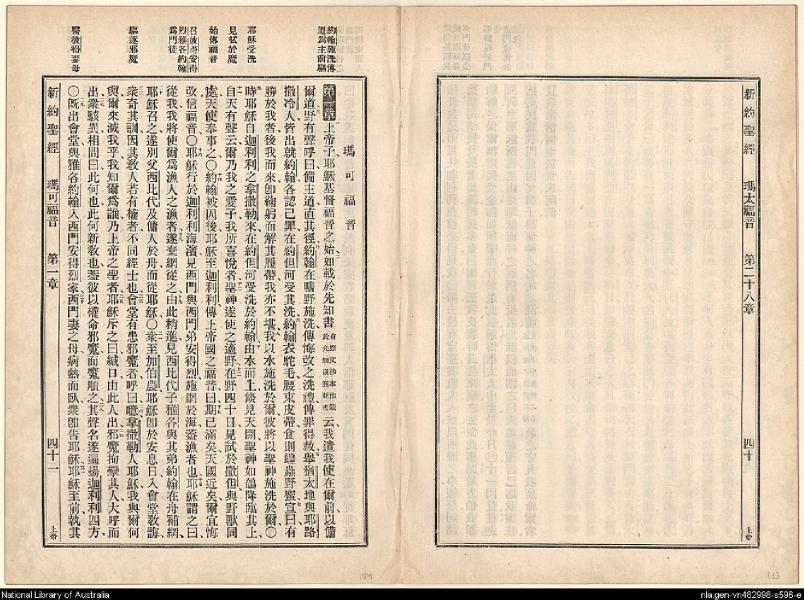 新約聖經 瑪太福音 第二十八章 四十 上帝
約翰施洗傳
道爲主前驅
耶穌受洗
見試於魔
始傳福音
召彼得安得
烈雅各約翰
爲門徒
驅逐邪魔
醫彼得妻母
瑪可福音
第一章 上帝子耶穌基督福音之始如載於先知書 云我遣我使在爾前以備
爾道野有聲呼曰備主道直其徑約翰在曠野施洗傳悔改之洗禮俾罪得赦舉猶太地與耶路
撒冷人皆出就約翰各認己罪在約但河受其洗約翰衣駝毛腰束皮帶食則蝗蟲野蜜宣曰有
勝於我者後我而來卽鞠躬而解其履帶我亦不堪我以水施洗於爾彼將以聖神施洗於爾〇
時耶穌自迦利利之拿撒勒來在約但河受洗於約翰由水而上倐見天開聖神如鴿降臨其上
自天有聲云爾乃我之愛子我所喜悅者聖神遂使之適野在野四十日見試於撒但與野獸同
處天使奉事之〇約翰被囚後耶穌至迦利利傳上帝國之福音曰期已滿矣天國近矣爾宜悔
改信福音〇耶穌行於迦利利海濱見西門與西門弟安得烈施網於海蓋漁者也耶穌謂之曰
從我我將使爾爲漁人之漁者遂棄網從之由此稍進見西比代子雅各與其弟約翰在舟補網
耶穌召之遂別父西比代及傭人於舟而從耶穌〇衆至加伯農耶穌卽於安息日入會堂敎誨
衆奇其訓因其敎人若有權者不同經士也會堂有患邪魔者呼曰噫拿撒勒人耶穌我與爾何
與爾來滅我乎我知爾爲誰乃上帝之聖者耶穌斥之曰緘口由此人出邪魔拘攣其人大呼而
出衆駭異相問曰此何也此何新敎也蓋彼以權命邪魔而魔順之其聲名遂徧揚迦利利四方
〇既出會堂與雅各約翰入西門安得烈家西門妻之母病熱而臥衆卽告耶穌耶穌至前執其
新約聖經 瑪可福音 第一章 四十一 上帝
National Library of Australia
nla.gen-vn482998-s596-e